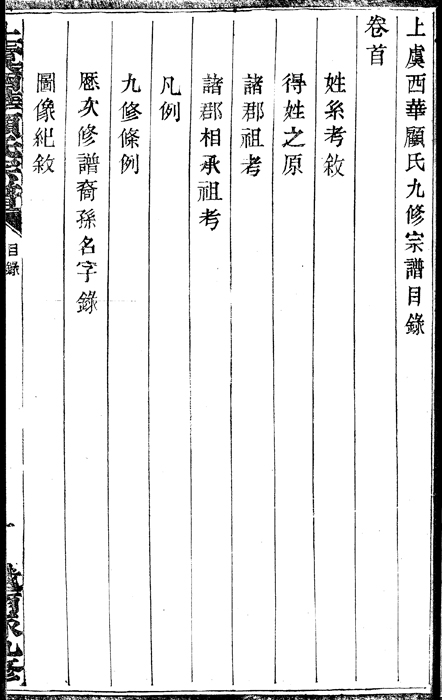 上虞西華顧氏九修宗譜目錄
卷首
姓系考敘
得姓之原
諸郡祖考
諸郡相承祖考
凡例
九修條例
歷次修譜裔孫名字錄
圖像紀敘
目錄
一